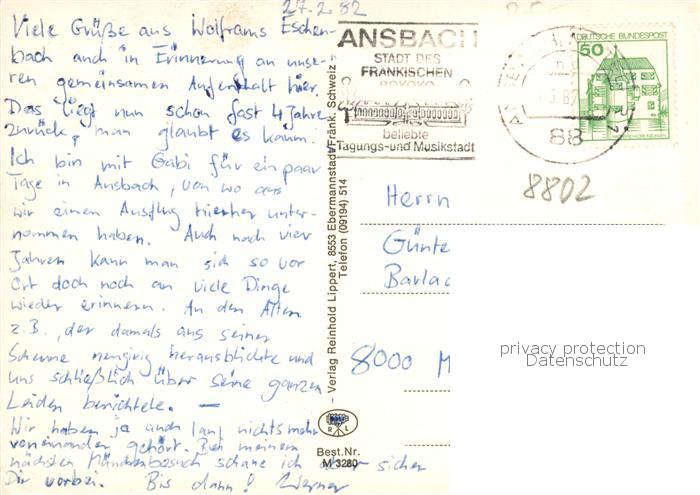 27.2.82
Viele Grüße aus Wolframs Eschen-
bach auch in Erinnerung an unse-
ren gemeinsamen Aufenthalt hier.
Das liegt nun schon fast 4 Jahre
zurück, man glaubt es kaum.
Ich bin mit Gabi für ein paar
Tage in Ansbach, von wo aus
wir einen Ausflug hierher unter-
nommen haben. Auch nach vier
Jahren kann man sich so vor
Ort doch noch an viele Dinge
wieder erinnern. An den Alten
z.B., der damals aus seiner
Scheune neugierig herausblickte und
uns schließlich über seine ganzen
Leiden berichtete. —
Wir haben ja auch lang nichts mehr
voneinander gehört. Bei meinem
nächsten Münchenbesuch schaue ich aber sicher
Dir vorbei. Bis dann! Werner
Verlag Reinhold Lippert, 8553 Ebermannstadt/Fränk. Schweiz
Telefon (09194) 514
R L
Best.Nr.
M 3280
ANSBACH
STADT DES
FRÄNKISCHEN
ROKOKO
beliebte
Tagungs- und Musikstadt
88
50
DEUTSCHE BUNDESPOST
8802
Herrn
Günte
Barlac
8000 M
privacy protection
Datenschutz